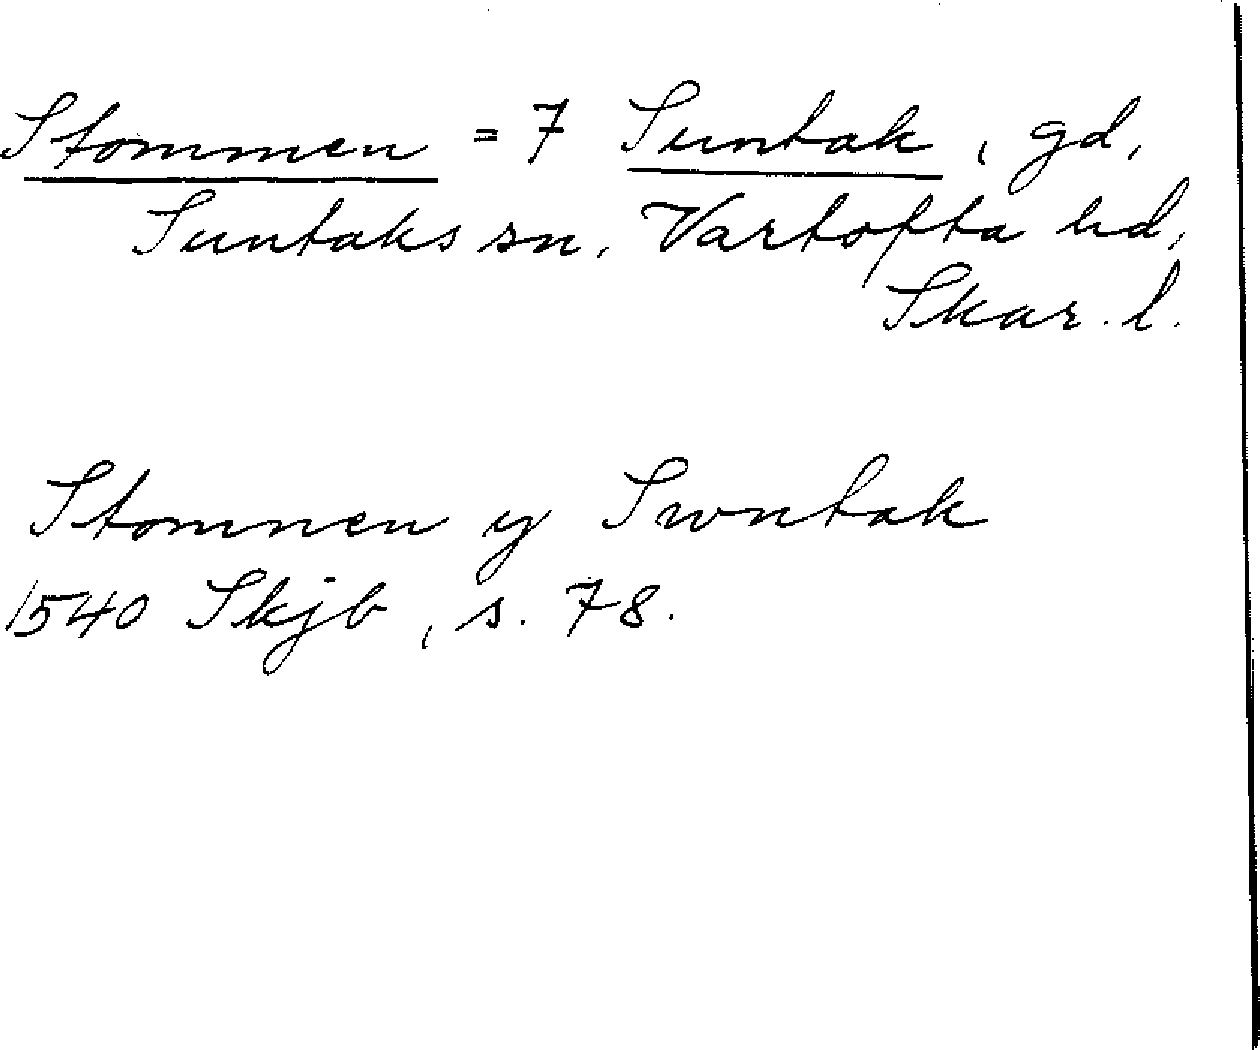 Stommen = 7 Suntak, gd,
Suntaks sn, Vartofta hd,
Skar. l.
Stomnen y Swntak
1540 Skjb, s. 78.